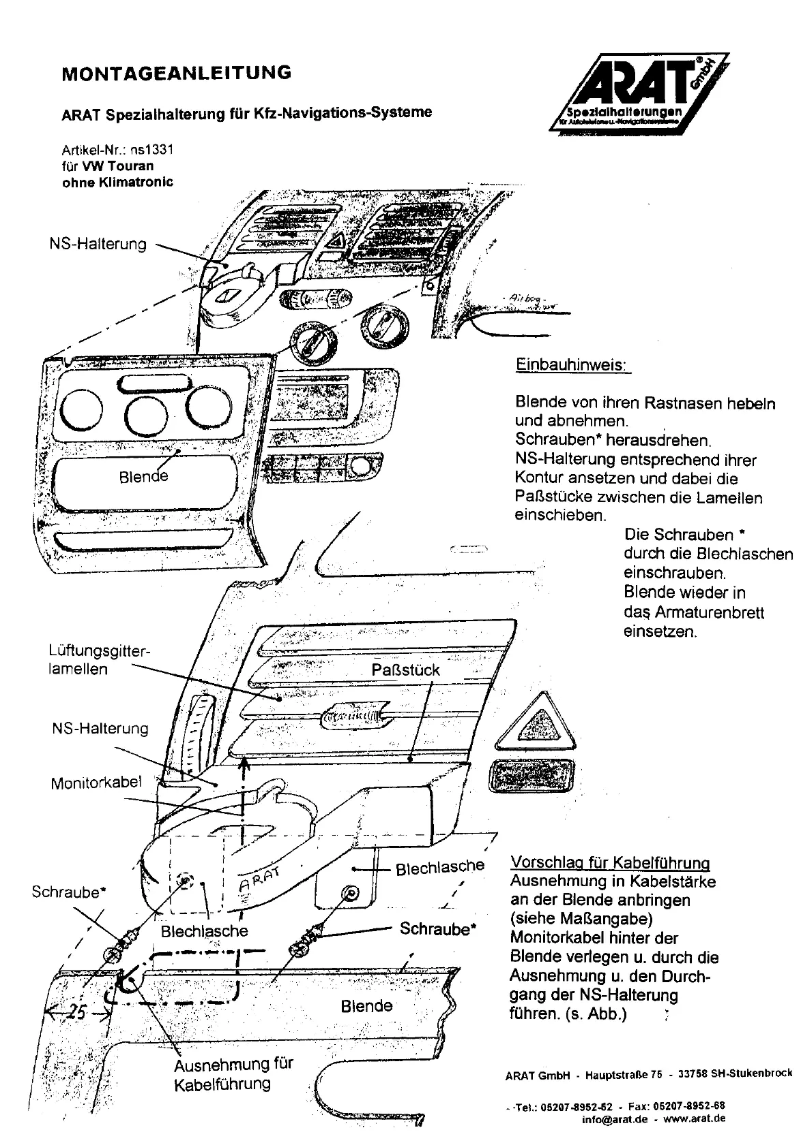 MONTAGEANLEITUNG
ARAT GmbH
Spezialhalterungen
für Autotelefone u. -Navigationssysteme
ARAT Spezialhalterung für Kfz-Navigations-Systeme
Artikel-Nr.: ns1331
für VW Touran
ohne Klimatronic
NS-Halterung
Airbag
Blende
Einbauhinweis:
Blende von ihren Rastnasen hebeln
und abnehmen.
Schrauben* herausdrehen.
NS-Halterung entsprechend ihrer
Kontur ansetzen und dabei die
Paßstücke zwischen die Lamellen
einschieben.
Die Schrauben *
durch die Blechlaschen
einschrauben.
Blende wieder in
das Armaturenbrett
einsetzen.
Lüftungsgitter-
lamellen
Paßstück
NS-Halterung
Monitorkabel
ARAT
Blechlasche
Schraube*
Blechlasche
Schraube*
25
Blende
Ausnehmung für
Kabelführung
Vorschlag für Kabelführung
Ausnehmung in Kabelstärke
an der Blende anbringen
(siehe Maßangabe)
Monitorkabel hinter der
Blende verlegen u. durch die
Ausnehmung u. den Durch-
gang der NS-Halterung
führen. (s. Abb.)
ARAT GmbH - Hauptstraße 75 - 33758 SH-Stukenbrock
- Tel.: 05207-8952-62 - Fax: 05207-8952-68
info@arat.de - www.arat.de